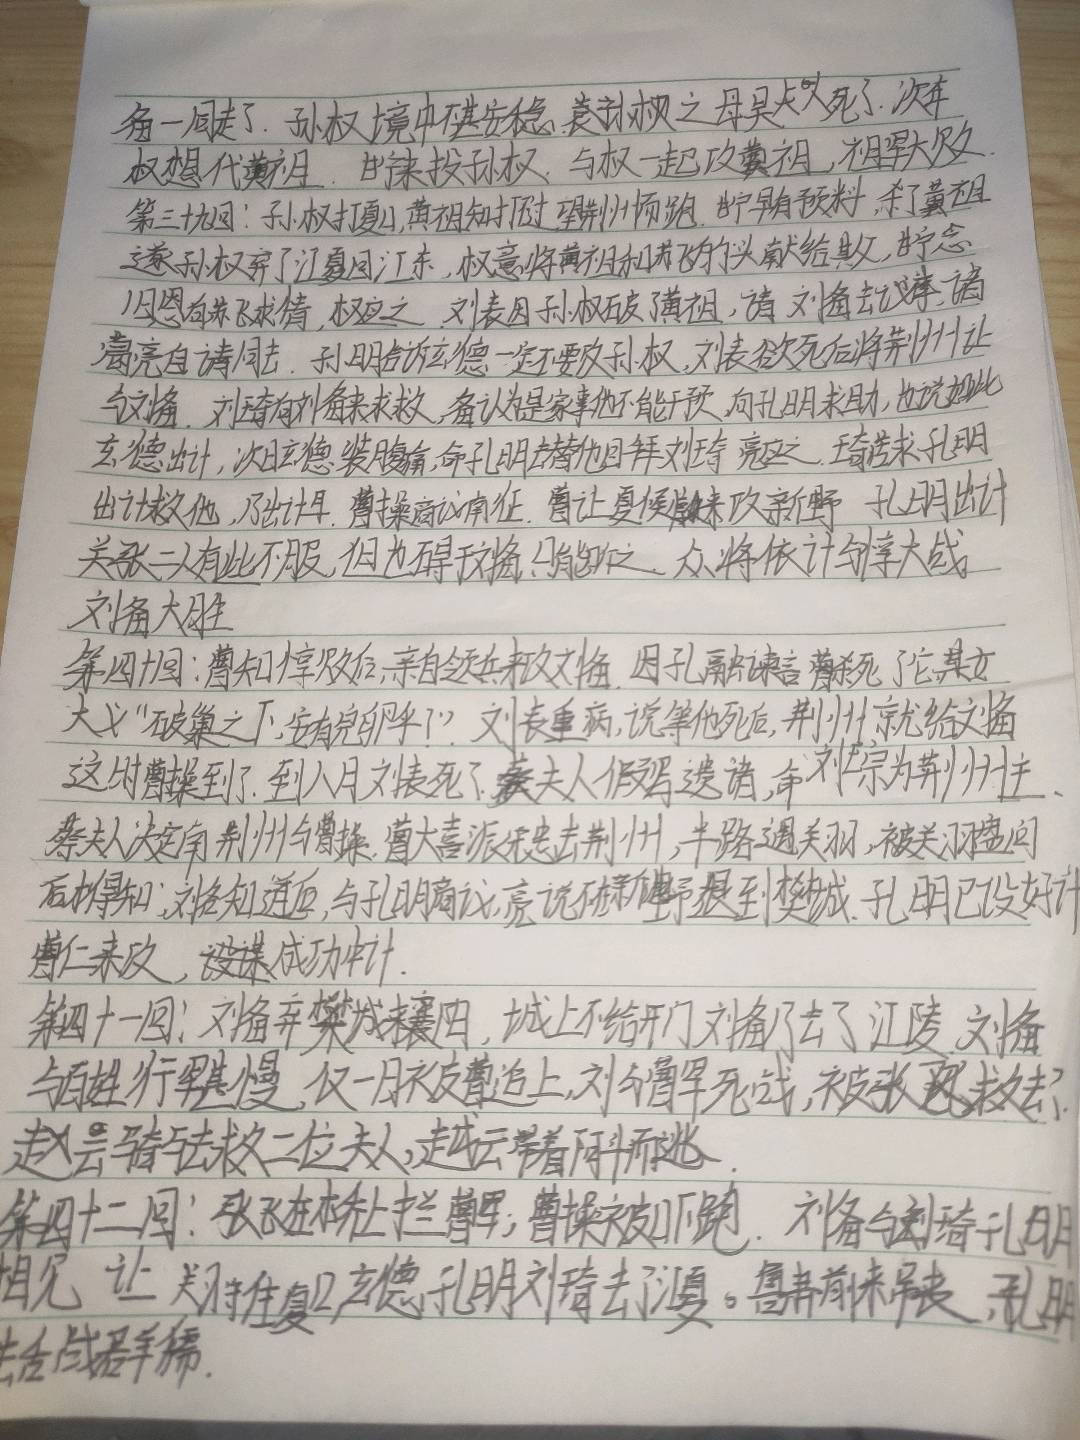 备一同走了. 孙权境中不甚安稳, 孙权之母吴太夫人死了. 次年
权想伐黄祖. 甘来投孙权, 与权一起攻黄祖, 祖军大败.
第三十九回: 孙权打夏口, 黄祖知抵不过, 望荆州而跑. 甘宁早有预料, 杀了黄祖
遂孙权弃了江夏回江东, 权意将黄祖和苏飞的头献给父, 甘宁念
旧恩向苏飞求情, 权应之. 刘表因孙权破了黄祖, 请刘备去议事, 诸
葛亮自请同去. 孔明告诉玄德一定不要攻孙权, 刘表欲死后将荆州让
与刘备. 刘琦向刘备来求救, 备认为是家事他不能干预, 向孔明求助, 也说如此
玄德出计, 次日玄德装腹痛, 命孔明去替他回拜刘琦 亮应之. 琦苦求孔明
出计救他, 乃出计耳. 曹操商议南征. 曹让夏侯惇来攻新野 孔明出计
关张二人有些不服, 但也碍于刘备, 只能如之. 众将依计与惇大战
刘备大胜
第四十回: 曹知惇败后, 亲自领兵来攻刘备. 因孔融谏言曹杀死了它, 其女
大义"破巢之下, 安有完卵乎?" 刘表重病, 说等他死后, 荆州就给刘备
这时曹操到了. 到八月刘表死了. 蔡夫人假写遗诸, 命刘琮为荆州主.
蔡夫人决定南荆州与曹操. 曹大喜派宋忠去荆州, 半路遇关羽, 被关羽盘问
后才得知; 刘备知道后, 与孔明商议, 亮说不如新野退到樊城. 孔明已设好计
曹仁来攻, 设谋成功中计.
第四十一回: 刘备弃樊城来襄阳, 城上不给开门 刘备乃去了江陵 刘备
与百姓行军甚慢, 仅一月被曹追上, 刘与曹军死战, 被张飞救去了.
赵云骑马去救二位夫人, 赵云带着阿斗而逃.
第四十二回: 张飞在桥上拦曹军; 曹操被吓跑. 刘备与刘琦孔明
相见 让关羽守住夏口 玄德, 孔明刘琦去了江夏。鲁肃前来吊丧, 孔明
去舌战群儒.